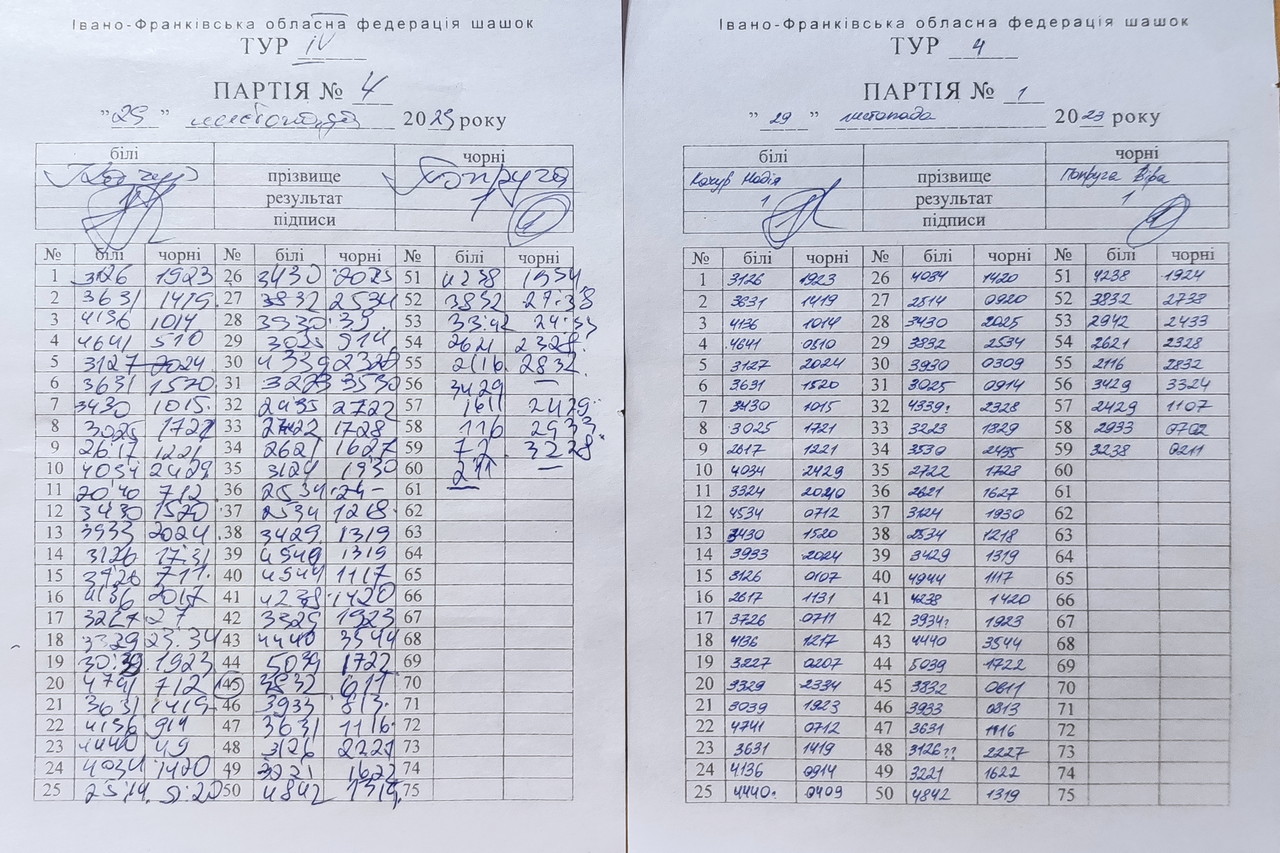 Івано-Франківська обласна федерація шашок
ТУР IV
ПАРТІЯ № 4
"29" листопада 2023 року
білі чорні
Качур прізвище Попруга
1 результат 1
підписи
№ білі чорні № білі чорні № білі чорні
1 3126 1923 26 3430 2025 51 4238 1934
2 3631 1419 27 3832 2534 52 3832 27:38
3 4136 1014 28 3930 39 53 33:42 24:33
4 4641 510 29 3025 914 54 2621 2328
5 3127 2024 30 4339 2328 55 2116 2832
6 3631 1520 31 3223 3530 56 3429 —
7 3430 1015 32 2435 2722 57 1611 2429
8 3025 1721 33 2722 1728 58 116 2933
9 2617 1221 34 2621 1627 59 72 3228
10 4034 2429 35 3124 1930 60 211 —
11 2040 712 36 2534 24 — 61
12 3430 1520 37 2534 1218 62
13 3933 2024 38 3429 1319 63
14 3126 17:31 39 4540 1319 64
15 3726 711 40 4544 1117 65
16 4136 2017 41 4238 1420 66
17 3227 27 42 3325 1923 67
18 3329 23.34 43 4440 3544 68
19 30:39 1923 44 5039 1722 69
20 4741 712 45 3832 611 70
21 3631 1419 46 3933 813 71
22 4136 914 47 3631 1116 72
23 4440 49 48 3126 2227 73
24 4034 1420 49 3221 1622 74
25 25:14 9:20 50 4842 1319 75
Івано-Франківська обласна федерація шашок
ТУР 4
ПАРТІЯ № 1
"29" листопада 2023 року
білі чорні
Качур Надія прізвище Попруга Віра
1 результат 1
підписи
№ білі чорні № білі чорні № білі чорні
1 3126 1923 26 4034 1420 51 4238 1924
2 3631 1419 27 2514 0920 52 3832 2733
3 4136 1014 28 3430 2025 53 2942 2433
4 4641 0510 29 3832 2534 54 2621 2328
5 3127 2024 30 3930 0309 55 2116 2832
6 3631 1520 31 3025 0914 56 3429 3324
7 3430 1015 32 4339? 2328 57 2429 1107
8 3025 1721 33 3223 1829 58 2933 0702
9 2617 1221 34 3530 2435 59 3238 0211
10 4034 2429 35 2722 1728 60
11 3324 2040 36 2621 1627 61
12 4534 0712 37 3124 1930 62
13 3430 1520 38 2534 1218 63
14 3933 2024 39 3429 1319 64
15 3126 0107 40 4944 1117 65
16 2617 1131 41 4238 1420 66
17 3726 0711 42 3934? 1923 67
18 4136 1217 43 4440 3544 68
19 3227 0207 44 5039 1722 69
20 3329 2334 45 3832 0611 70
21 3039 1923 46 3933 0813 71
22 4741 0712 47 3631 1116 72
23 3631 1419 48 3126?? 2227 73
24 4136 0914 49 3221 1622 74
25 4440? 0409 50 4842 1319 75